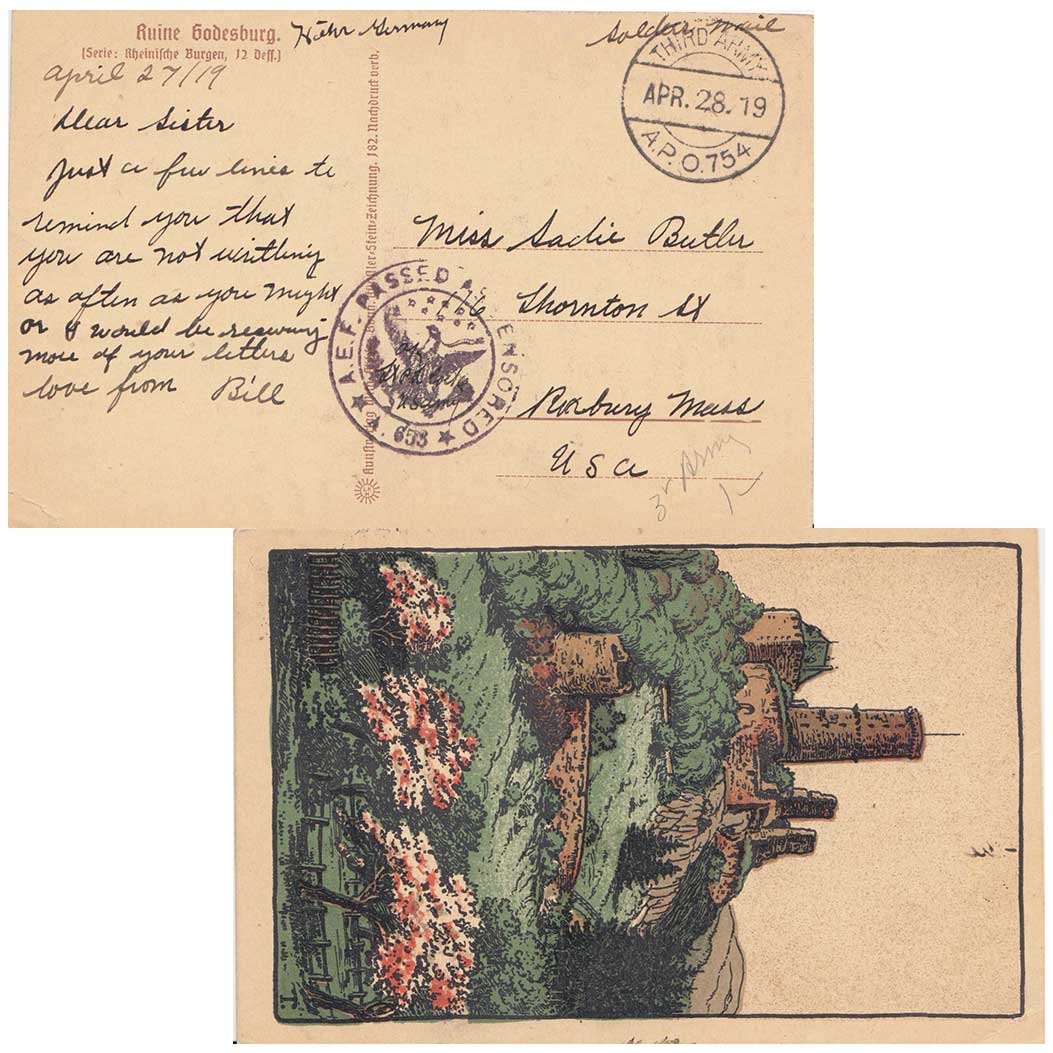 Ruine Godesburg.
(Serie: Rheinische Burgen, 12 Dess.)
Germany
Soldier mail
april 27/19
Dear Sister
Just a few lines to
remind you that
you are not writting
as often as you might
or I would be receiving
more of your letters
love from Bill
-Stein-Zeichnung. 182. Nachdruck verb.
THIRD ARMY
APR. 28. 19
A.P.O. 754
Miss Sadie Butler
76 Thornton St
Roxbury Mass
USa
A.E.F. PASSED AS CENSORED
OK
A. 653
3r Army